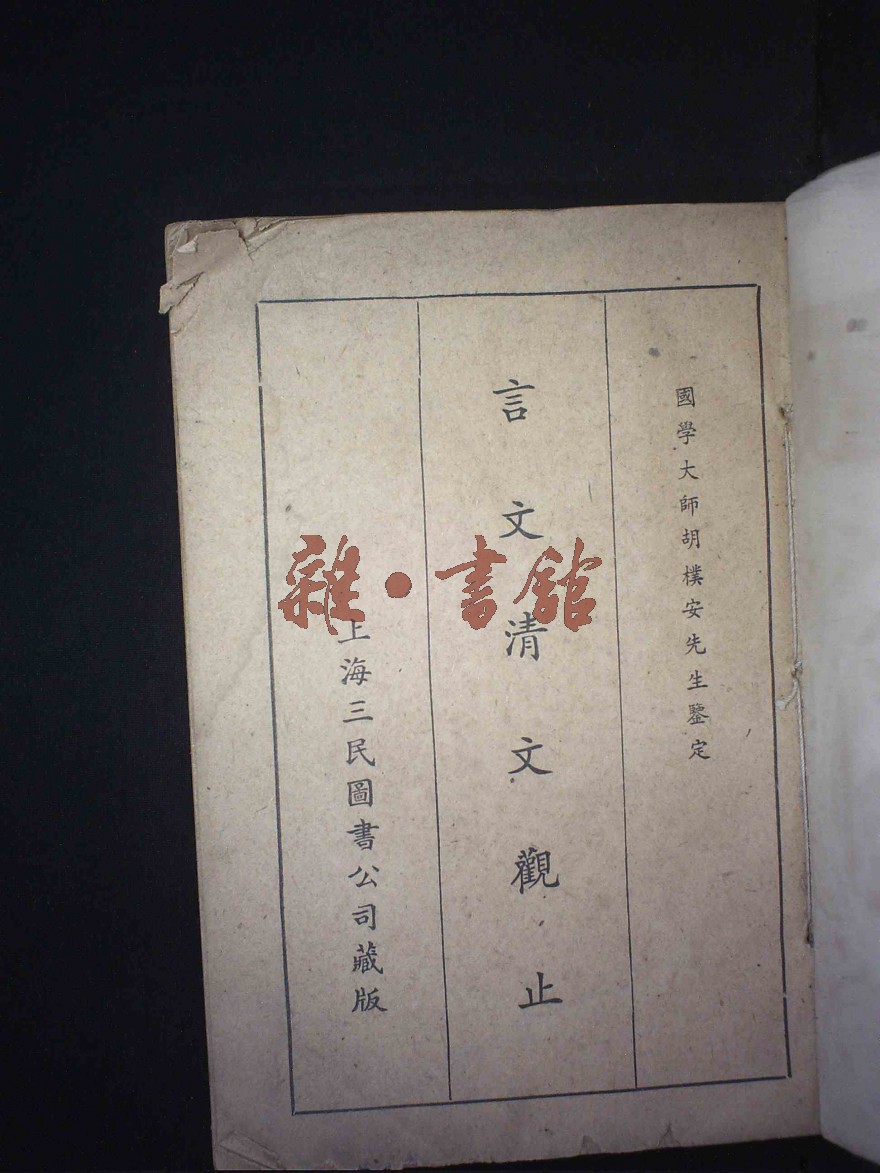 國學大師胡樸安先生鑒定
言文清文觀止
上海三民圖書公司藏版
雜·書館